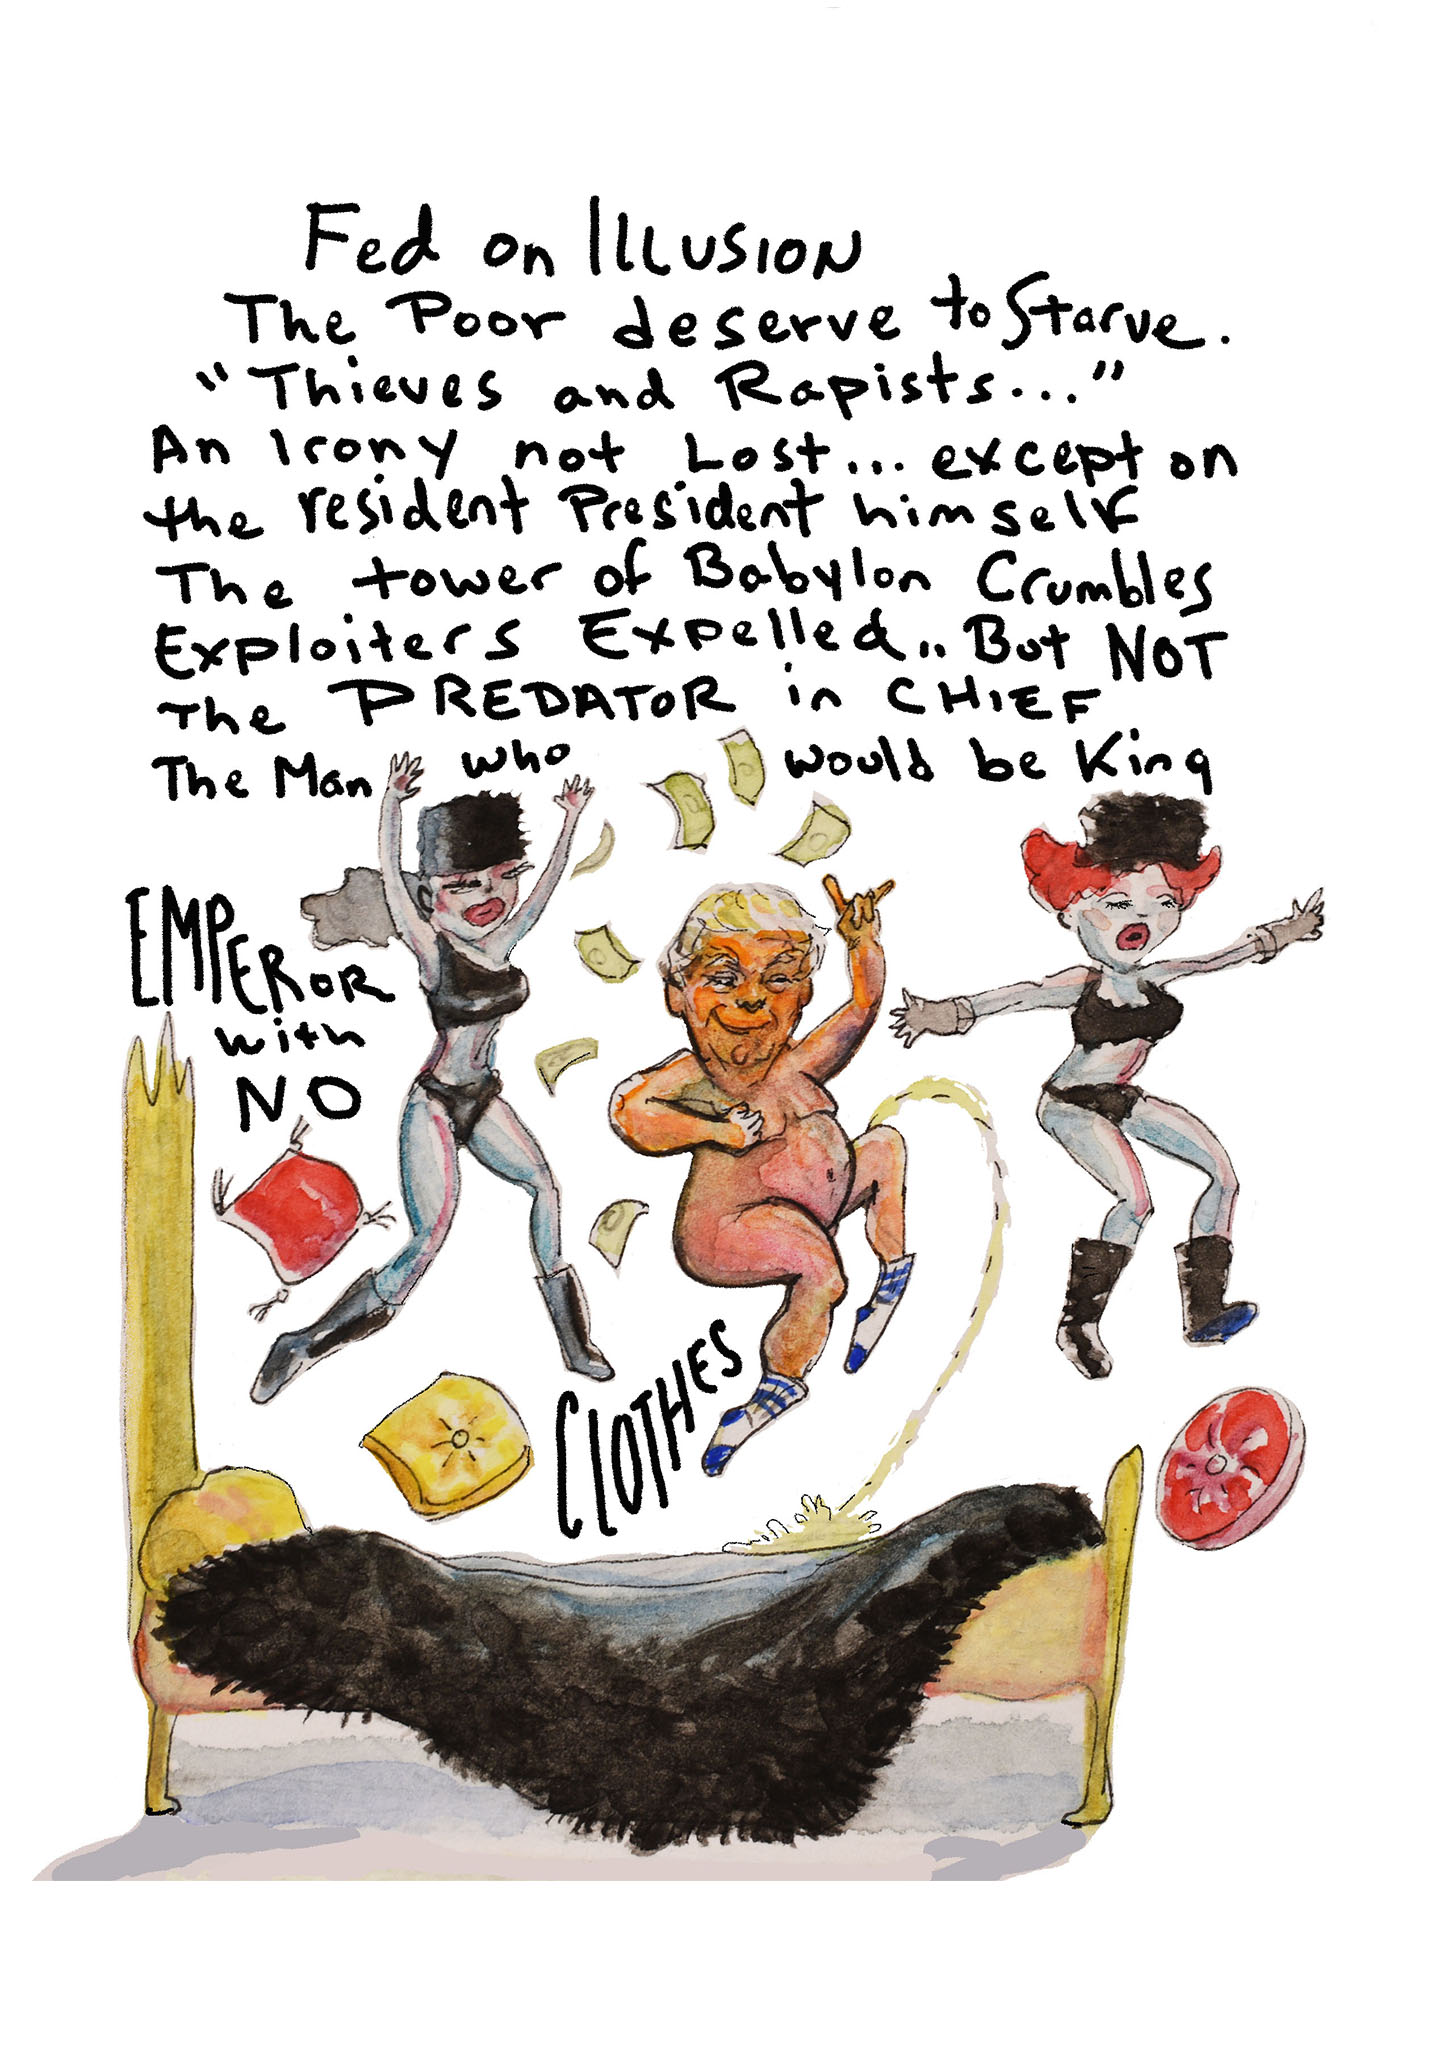 Fed on ILLUSION
The Poor deserve to Starve.
"Thieves and Rapists..."
An Irony not Lost... except on
the resident President himself
The tower of Babylon Crumbles
Exploiters Expelled.. But NOT
The PREDATOR in CHIEF
The Man who would be King
EMPEROR
with
NO
CLOTHES